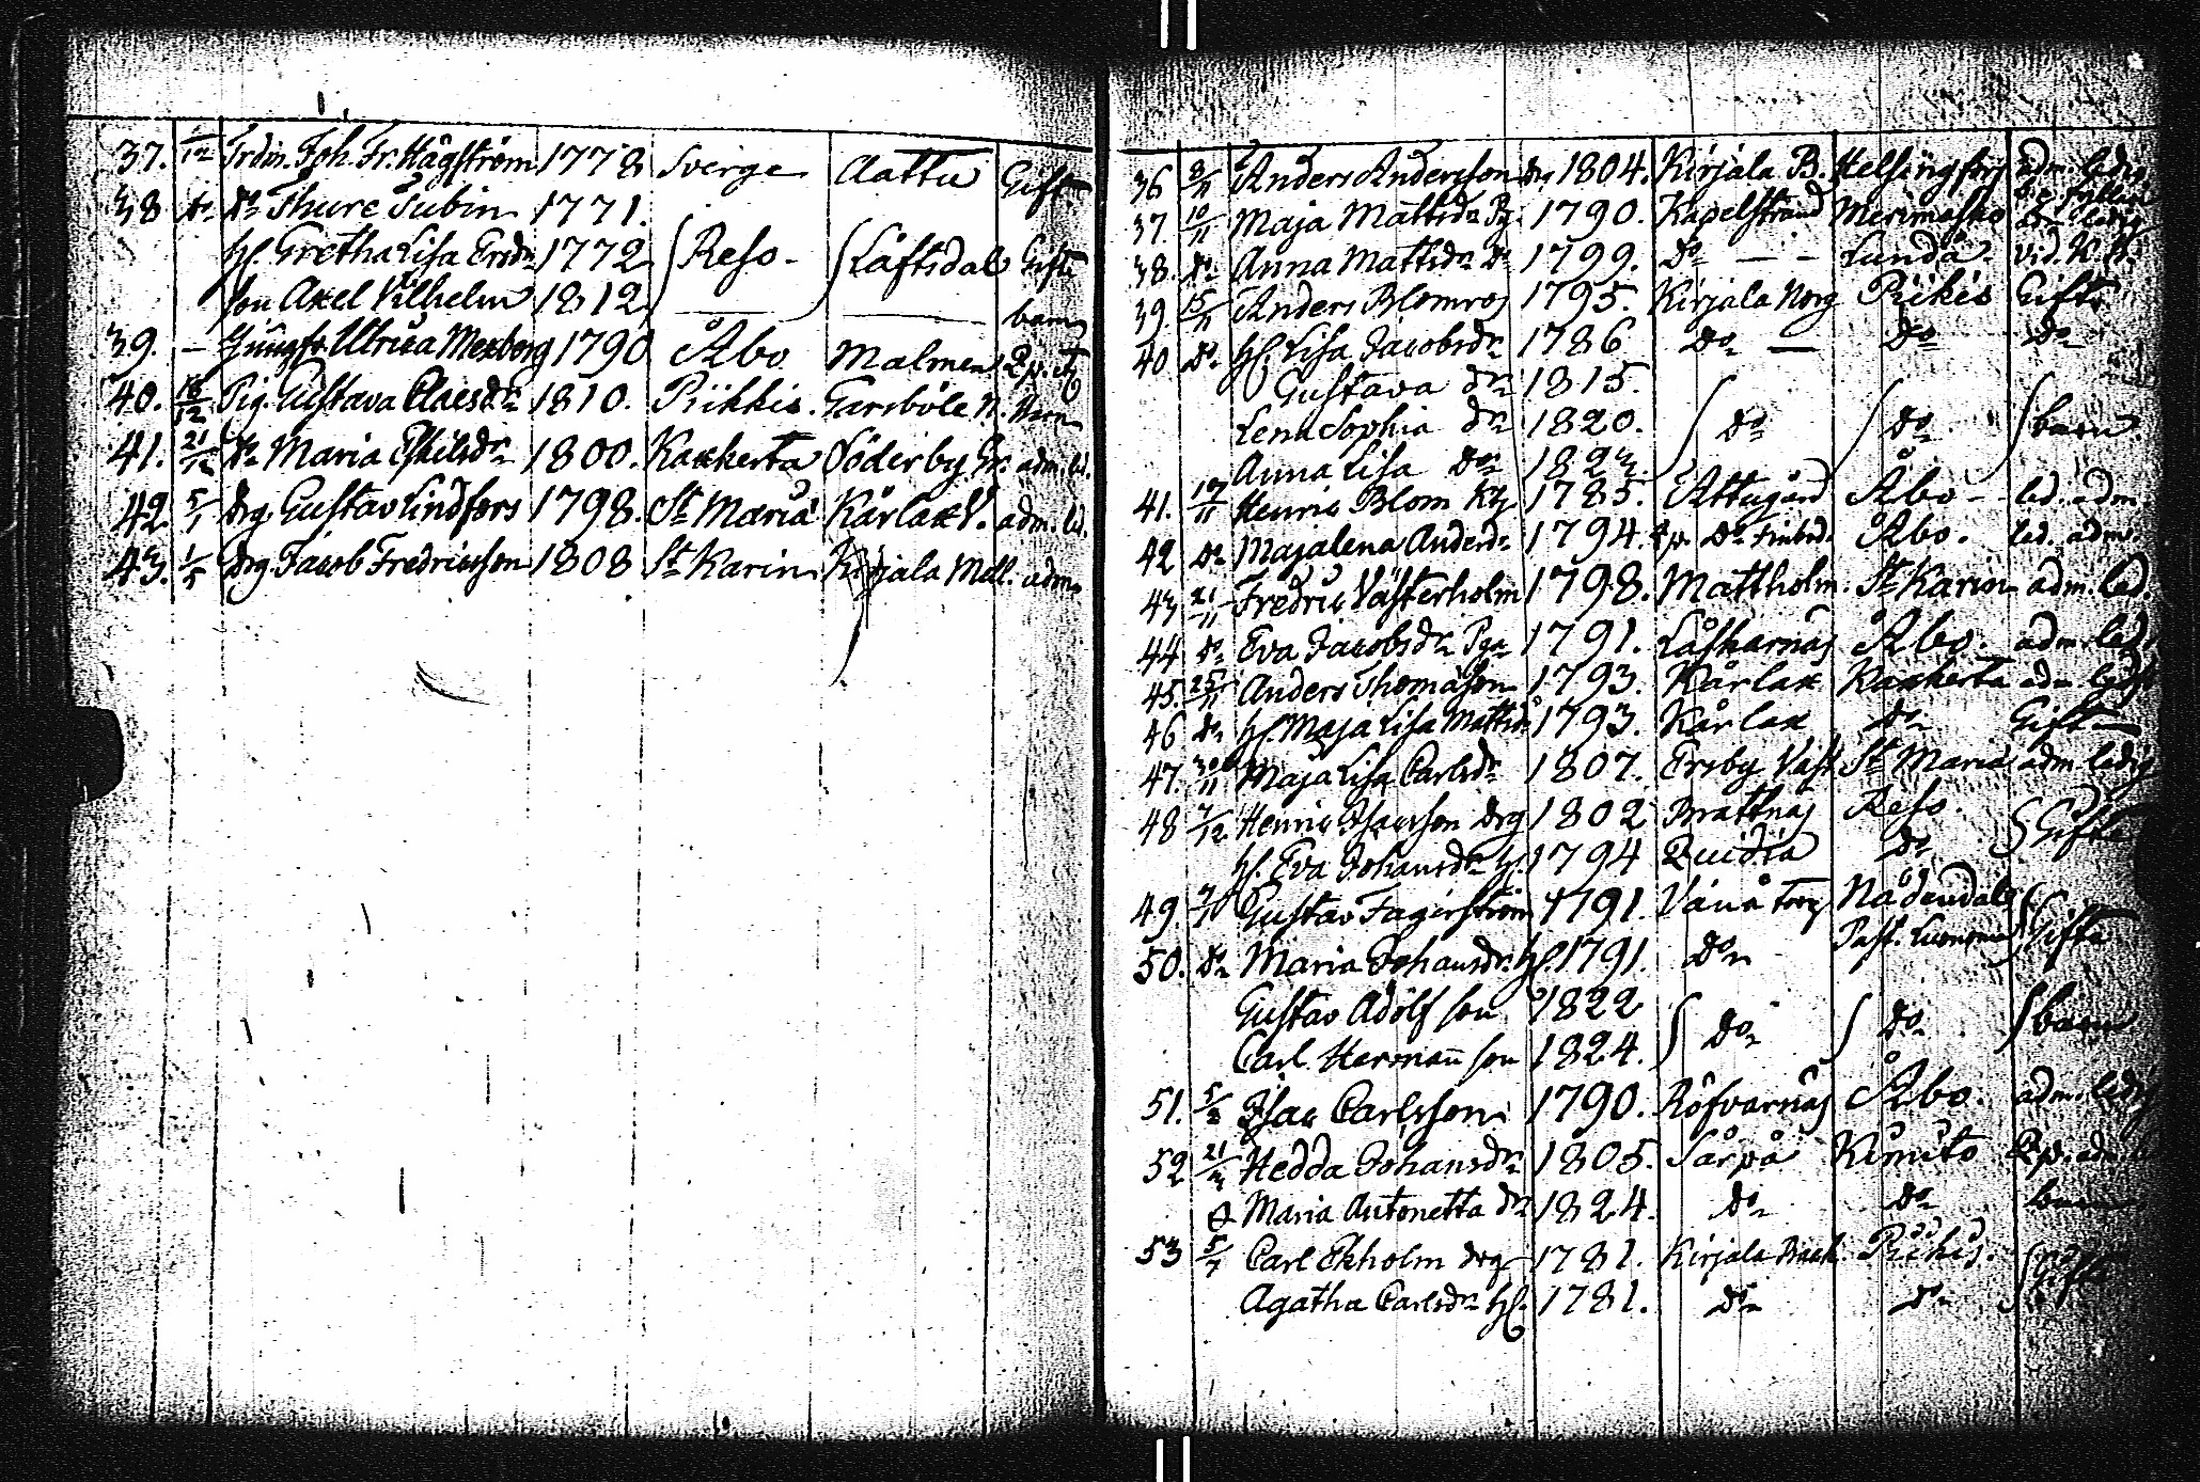 37. 1/12 Trdm. Joh. Fr. Hägström 1778 Sverge Aattu Gift
38 do Do Thure Tubin 1771.
H. Gretha Lisa Ersdr 1772 Reso - Låftsdal Gifte
son Axel Vilhelm 1812 barn
39. — Jungfr Ulrica Mexborg 1790 Åbo Malmen
40. 16/12 Pig. Gustava Claesdr 1810. Piikkis. Garsböle N.
41. 21/12 Do Maria Eskilsdr 1800. Kaxkerta Söderby Gr. adm. led.
42 5/1 drg Gustav Lindfors 1798. St Maria Kårlax V. adm. led.
43. 1/5 drg Jacob Fredricsson 1808 St Karin Kirjala Mell. adm.
36 8/11 Anders Andersson drg 1804. Kirjala B. Helsingfors adm. ledig
37. 10/11 Maja Mattsdr Pg. 1790. Kapelstrand Merimasko adm. ledig
38. do Anna Mattsdr do 1799. do — - Lundå - vid. N. N.
39. 15/11 Anders Blomros 1795. Kirjala Norg Piikis Gifte
40 do H. Lisa Jacobsdr 1786 do — do do
Gustava dr 1815.
Lena Sophia dr 1820. do do barn
Anna Lisa dr 1823.
41. 17/11 Henric Blom 1785. Attugård Åbo - led. adm.
42 do Majalena Andersdr 1794. Åbo. led. adm.
43 21/11 Fredric Västerholm 1798. Mattholm. St Karin adm. led.
44 do Eva Jacobsdr Pga 1791. Låfharnäs Åbo. adm led
45. 25/11 Anders Thomasson 1793. Kårlax Kaxkerta adm ledig
46 do H. Maja Lisa Mattsdr 1793. Kårlax do Gift —
47. 30/11 Maja Lisa Carlsdr 1807. Ersby Väst St Maria adm ledig
48 7/12 Henric Isacsson drg 1802 Brattnäs Reso. Gifte
H. Eva Johansdr H. 1794 Qvidia do
49 7/1 Gustav Fagerström 1791. Vånå Torp Nådendal Gifte
50. do Maria Johansdr H. 1791. do Past. Luonnonma
Gustav Adolf son 1822 do do barn
Carl Hermañ son 1824.
51. 5/3 Isac Carlsson 1790. Röfvarnäs Åbo. adm. ledig
52 21/3 Hedda Johansdr 1805. Sårpå Kimito
Maria Antonetta dr 1824. do do barn
53 5/7 Carl Ekholm drg 1781. Kirjala Back Piikis. Gifte
Agatha Carlsdr H. 1781. do do